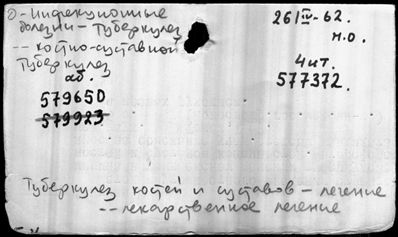 0-Инфекционные
болезни - Туберкулез
-- костно-суставной
Туберкулез
аб.
579650
579923
26/IV-62.
н.о.
4 чит.
577372.
Туберкулез костей и суставов - лечение
-- лекарственное лечение